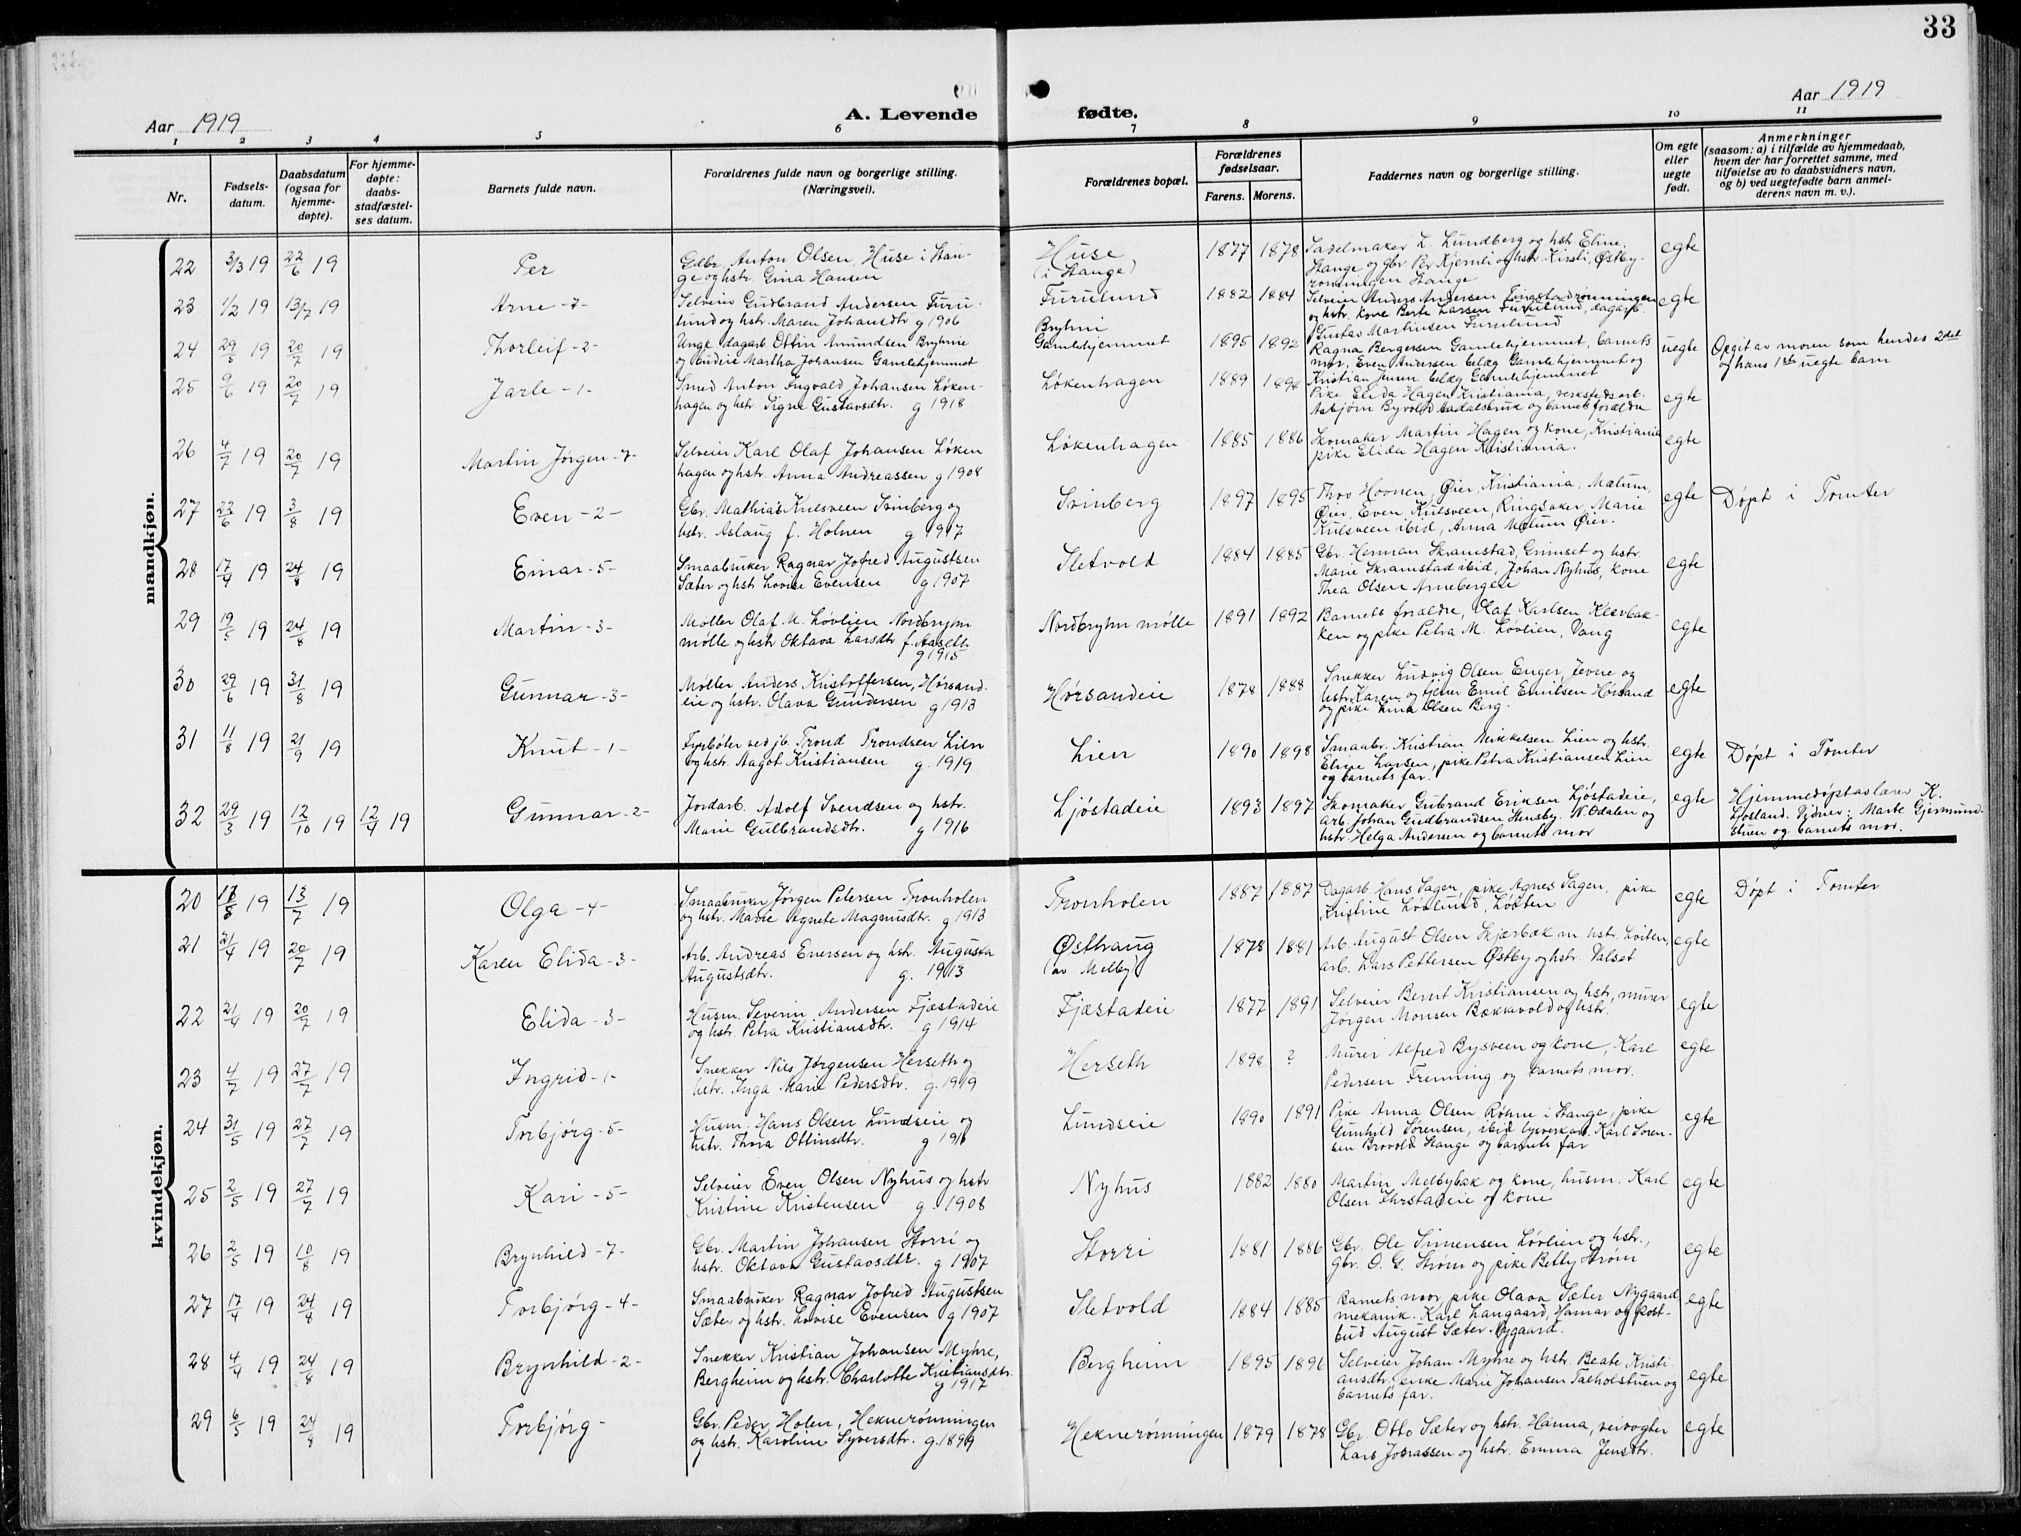 33
Aar 1919
A. Levende fødte.
Aar 1919
1 2 3 4 5 6 7 8 9 10 11
Nr.
Fødsels-
datum.
Daabsdatum
(ogsaa for
hjemme-
døpte).
For hjemme-
døpte:
daabs-
stadfæstel-
ses datum.
Barnets fulde navn.
Forældrenes fulde navn og borgerlige stilling.
(Næringsvei).
Forældrenes bopæl.
Forældrenes
fødselsaar.
Farens. Morens.
Faddernes navn og borgerlige stilling.
Om egte
eller
uegte
født.
Anmerkninger
(saasom: a) i tilfælde av hjemmedaab,
hvem der har forrettet samme, med
tilføielse av to daabsvidners navn,
og b) ved uegtefødte barn anmel-
derens navn m. v.).
mandkjøn.
22 3/3 19 22/6 19 Per
Gbr. Anton Olsen Huse i Stan-
ge og hstr. Gina Hansen
Huse
(i Stange)
1877 1878
Sadelmaker L. Lundberg og hstr. Eline,
Stange og gbr. Per Kjernli og hstr. Kirsti, Østby-
rønningen Stange
egte
23 1/2 19 13/7 19 Arne -7-
Selveier Gudbrand Andersen Furu-
lund og hstr. Maren Johansdtr g 1906
Furulund
1882 1884
Selveier Anders Andersen Tingstadrønningen
og hstr. kone Berte Larsen Furulund, dagarb.
Gustav Martinsen Furulund
egte
24 29/5 19 20/7 19 Thorleif -2-
Unge dagarb. Ottin Amundsen Bryhni
og budeie Martha Johansen Gamlehjemmet
Bryhni
Gamlehjemmet
1895 1892
Ragna Bergersen Gamlehjemmet, barnets
mor, Even Andersen belæg Gamlehjemmet og
Kristian Jensen belæg Gamlehjemmet
uegte
Opgit av moren som hendes 2det
og hans 1ste uegte barn
25 9/6 19 20/7 19 Jarle -1-
Smed Anton Ingvald Johansen Løken-
hagen og hstr. Signe Gustavsdtr. g 1918
Løkenhagen
1889 1894
Pike Elida Hagen Kristiania, verkstedsarb.
Asbjørn Byvold Aadalsbruk og barnets forældre
egte
26 4/7 19 20/7 19 Martin Jørgen -7-
Selveier Karl Olaf Johansen Løken
hagen og hstr. Anna Andreassen g 1908
Løkenhagen
1885 1886
Skomaker Martin Hagen og kone, Kristiania
pike Elida Hagen Kristiania.
egte
27 22/6 19 3/8 19 Even -2-
Gbr. Mathias Kulsveen Svinberg og
hstr. Aslaug f. Holmen g 1917
Svinberg
1897 1895
Thov Hoonen, Øier, Kristiania, Mælum,
Øier, Even Kulsveen, Ringsaker, Marie
Kulsveen ibid, Anna Mælum Øier.
egte
Døpt i Tomter
28 17/4 19 24/8 19 Einar -5-
Smaabruker Ragnar Jofred Augustsen
Sæter og hstr. Lovise Evensen g 1907
Sletvold
1884 1885
Gbr. Herman Skramstad, Grimset og hstr.
Marie Skramstad ibid, Johan Nyhus, kone
Thea Olsen Arnebergeie
egte
29 19/5 19 24/8 19 Martin -3-
Møller Olaf M. Løvlien Nordbryhn
mølle og hstr Oktava Larsdtr f. Aaseth
g 1915
Nordbryhn mølle
1891 1892
Barnets forældre, Olaf Karlsen Kleivbak-
ken og pike Petra M. Løvlien, Vang
egte
30 29/6 19 31/8 19 Gunnar -3-
Møller Anders Kristoffersen, Hørsand-
eie og hstr. Olava Gundersen g 1913
Hørsandeie
1878 1888
Snekker Ludvig Olsen Enger, Jevne og
hstr. Karen og tjener Emil Emilsen Hørsand
og pike Lina Olsen Berg.
egte
31 11/8 19 21/9 19 Knut -1-
Fyrbøter ved jb. Trond Trondsen Lien
og hstr. Aagot Kristiansen g. 1919
Lien
1890 1898
Smaabr. Kristian Mikkelsen Lien og hstr.
Eline Larsen, pike Petra Kristiansen Lien
og barnets far.
egte
Døpt i Tomter
32 29/3 19 12/10 19 12/4 19 Gunnar -2-
Jordarb. Adolf Svendsen og hstr.
Marie Gulbrandsdtr. g 1916
Ljøstadeie
1893 1897
Skomaker Gubrand Eriksen Ljøstadeie,
arb. Johan Gudbrandsen Hensby. N. Odalen og
hstr. Helga Andersen og barnets mor
egte
Hjemmedøpt av lærer K.
Fosland. Vidner: Marte Gjermund-
stuen og barnets mor.
kvindekjøn.
20 18/5 19 13/7 19 Olga -4-
Smaabruker Jørgen Petersen Tronholen
og hstr. Marie Agnete Magnusdtr. g 1913
Tronholen
1887 1887
Dagarb. Hans Sagen, pike Agnes Sagen, pike
Kristine Løvlund, Løiten
egte
Døpt i Tomter
21 21/4 19 20/7 19 Karen Elida -3-
Arb. Andreas Enersen og hstr. Augusta
Augustsdtr. g. 1913
Østhaug
(av Melby)
1878 1881
Arb. August Olsen Skjærbæk m. hstr. Løiten,
arb. Lars Pettersen Østby og hstr. Valset
egte
22 21/4 19 20/7 19 Elida -3-
Husm. Severin Andersen Fjæstadeie
og hstr. Petra Kristiansdtr. g 1914
Fjæstadeie
1877 1891
Selveier Bernt Kristiansen og hstr, murer
Jørgen Monsen Bækkevold og hstr.
egte
23 4/7 19 27/7 19 Ingrid -1-
Snekker Nils Jørgensen Herseth og
hstr. Inga Marie Pedersdtr. g. 1919
Herseth
1898 ?
Murer Alfred Bysveen og kone, Karl
Pedersen Frenning og barnets mor.
egte
24 31/5 19 27/7 19 Torbjørg -5-
Husm. Hans Olsen Lundseie og
hstr. Thora Ottinsdtr. g 191
Lundseie
1890 1891
Pike Anna Olsen Røhne i Stange, pike
Gunhild Sørensen, ibid lysverkarb. Karl Søren-
sen Brovold Stange og barnets far
egte
25 2/5 19 27/7 19 Kari -5-
Selveier Even Olsen Nyhus og hstr
Kristine Kristensen g. 1908
Nyhus
1882 1880
Martin Melbybak og kone, husm. Karl
Olsen Ihrstadeie og kone
egte
26 2/5 19 10/8 19 Brynhild -7-
Gbr. Martin Johansen Storri og
hstr. Oktava Gustavsdtr. g 1907
Storri
1881 1886
Gbr. Ole Simensen Løvlien og hstr.,
Gbr. O. G. Strøm og pike Betty Strøm
egte
27 17/4 19 24/8 19 Torbjørg -4-
Smaabruker Ragnar Jofred Augustsen
Sæter og hstr. Lovise Evensen g 1907
Sletvold
1884 1885
Barnets mor, pike Olava Sæter Nygaard
mekanik. Karl Langaard, Hamar og post-
bud August Sæter Nygaard.
egte
28 4/4 19 24/8 19 Brynhild -2-
Snekker Kristian Johansen Myhre,
Bergheim og hstr. Charlotte Kristiansdtr.
g 1917
Bergheim
1895 1896
Selveier Johan Myhre og hstr. Beate Kristi-
ansdtr. enke Marie Johansen Talholstuen og
barnets far.
egte
29 6/5 19 24/8 19 Torbjørg -
Gbr. Peder Holen, Heknerønningen
og hstr. Karoline Syversdtr. g. 1899
Heknerønningen
1879 1878
Gbr. Otto Sæter og hstr. Hanna, veivogter
Lars Jonassen og hstr. Emma Jensdtr.
egte